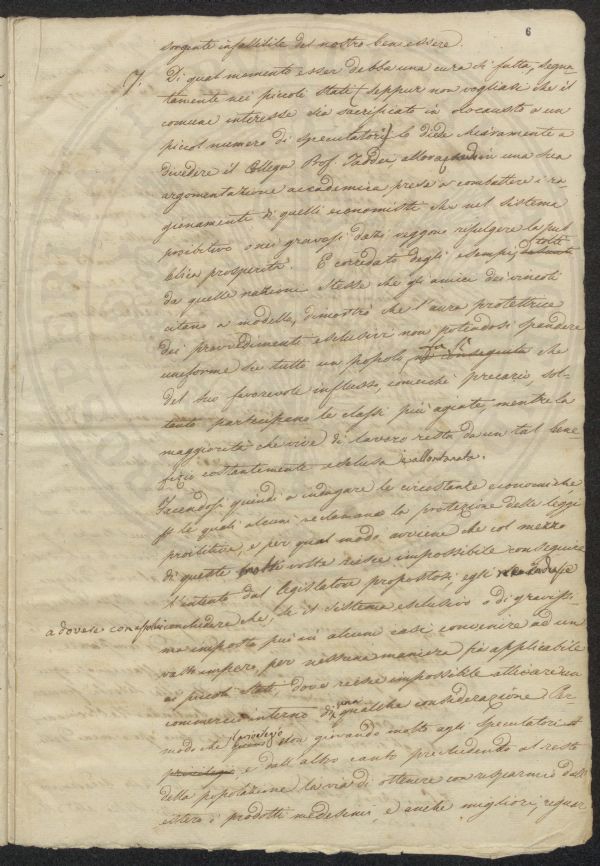 6
sorgente infallibile del nostro ben essere.
7. Di qual momento esser debba una cura sì fatta, segna-
tamente nei piccoli Stati (seppur non vogliasi che il
comune interesse sia sacrificato in olocausto a un
piccol numero di speculatori) lo diede chiaramente a
divedere il Collega Prof. Taddei allorachè in una sua
argomentazione accademica prese a combattere i ra-
gionamenti di quelli economisti che nel sistema
proibitivo o nei gravosi dazi veggono rifulgere la pub
blica prosperità. E corredato degli esempi tolti
da quelle nazioni stesse che gli amici dei vincoli
citano a modello, dimostrò che l'aura protettrice
dei provvedimenti esclusivi non potendosi spandere
uniforme su tutto un popolo, fa sì che
del suo favorevole influsso, comechè precario, sol-
tanto partecipano le classi più agiate, mentre la
maggiorità che vive di lavoro resta da un tal bene
fizio costantemente esclusa e allontanata.
Facendosi quindi a indagare le circostanze economiche,
per le quali alcuni reclamano la protezione delle leggi
proibitive, e per qual modo avviene che col mezzo
di queste molte volte riesce impossibile conseguire
l'intento dal legislatore propostosi egli
a dovere concludere che, se il sistema esclusivo o di gravissi-
ma imposta può in alcuni casi convenire ad un
vasto impero, per nessuna maniera fia applicabile
ai piccoli Stati, dove riesce impossibile attivare un
commercio interno di una qualche considerazione. Per
modo che il privilegio non giovando molto agli speculatori
privilegiati, e dall'altro canto precludendo al resto
della popolazione la via di ottenere con risparmio dall'
estero i prodotti medesimi, e anche migliori, riguar